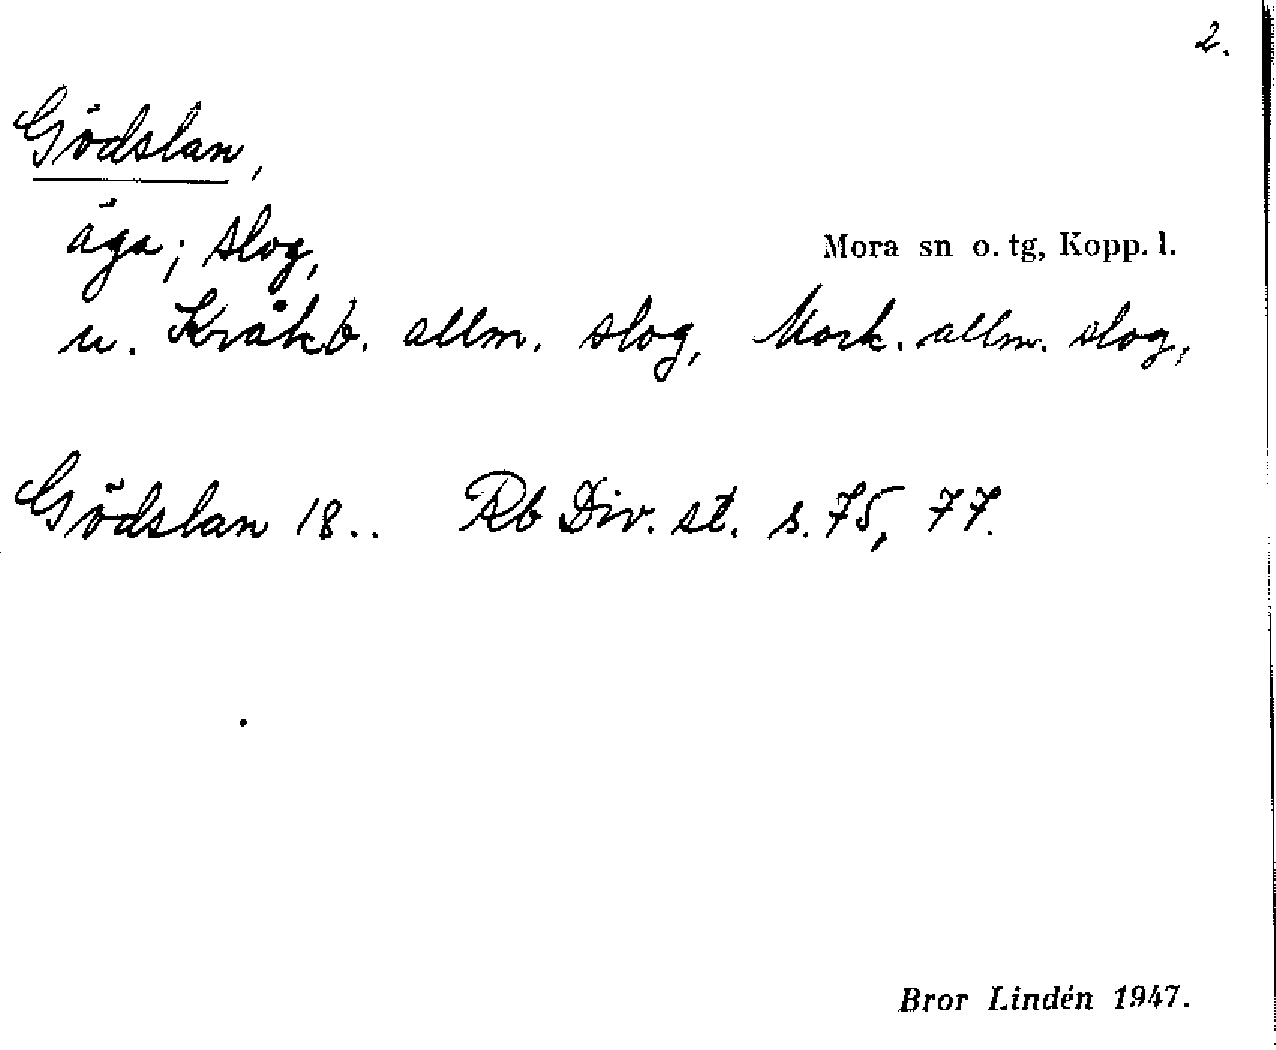 2.
Gödslan,
äga; slog,
Mora sn o. tg, Kopp. l.
u. Kråkb. allm. slog, Mork. allm. slog,
Gödslan 18.. Rb Div. st. s. 75, 77.
Bror Lindén 1947.